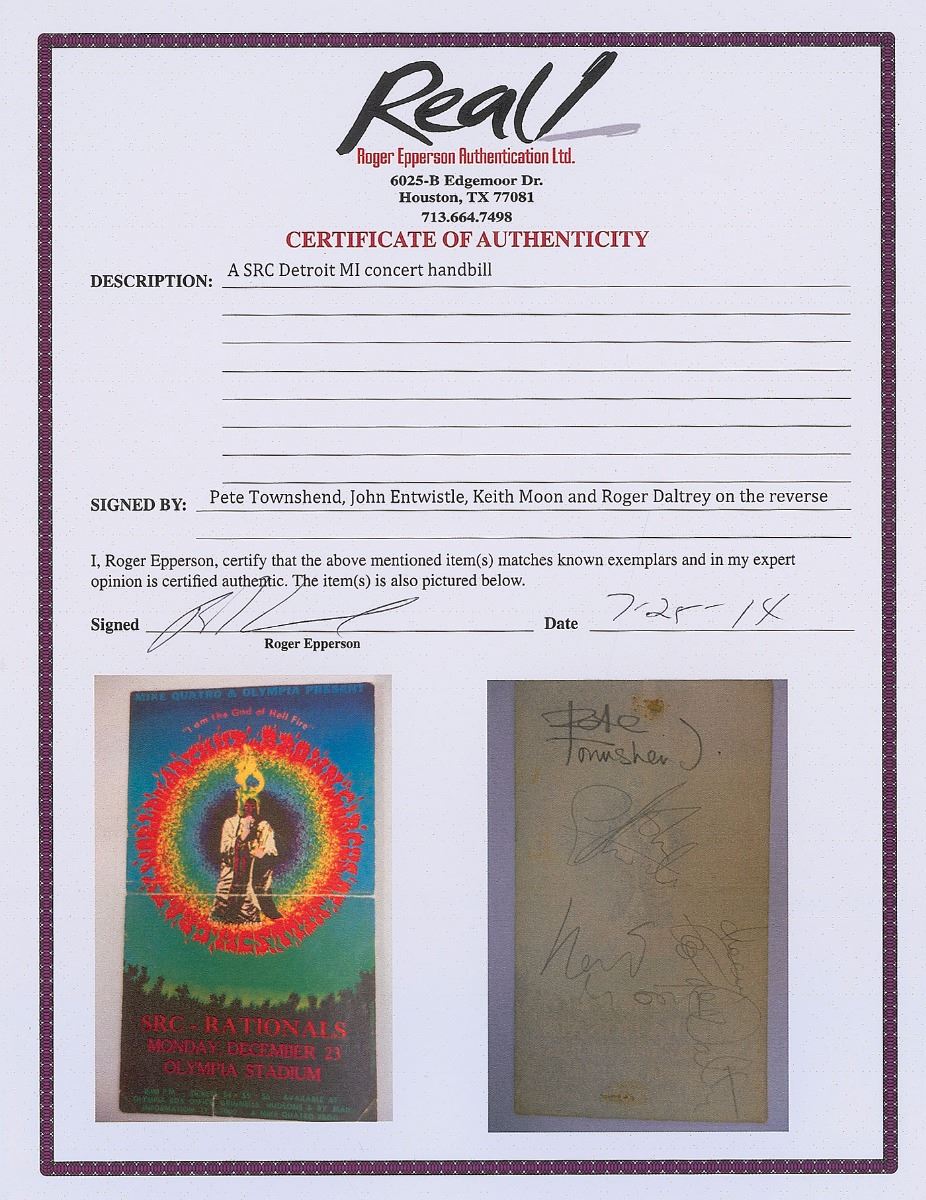 Real!
Roger Epperson Authentication Ltd.
6025-B Edgemoor Dr.
Houston, TX 77081
713.664.7498
CERTIFICATE OF AUTHENTICITY
DESCRIPTION: A SRC Detroit MI concert handbill
SIGNED BY: Pete Townshend, John Entwistle, Keith Moon and Roger Daltrey on the reverse
I, Roger Epperson, certify that the above mentioned item(s) matches known exemplars and in my expert
opinion is certified authentic. The item(s) is also pictured below.
Signed
Date 7-25-14
Roger Epperson
MIKE QUATRO & OLYMPIA PRESENT
"I am the God of Hell Fire"
SRC - RATIONALS
MONDAY, DECEMBER 23
OLYMPIA STADIUM
Pete
Townshend
Keith
Moon